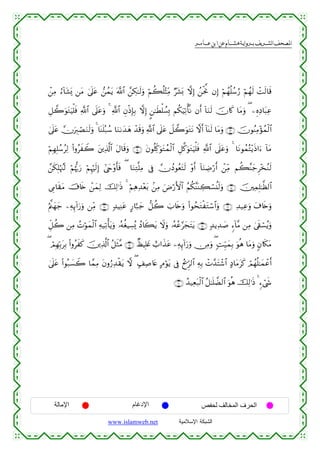 المصحف الشريف برواية هشام عن ابن عامر
قَالَتْ لَهُمْ رُسُلُهُمْ إِن نَّحْنُ إِلَّا بَشَرٌ مِّثْلُكُمْ وَلَٰكِنَّ ٱللَّهَ يَمُنُّ عَلَىٰ مَن يَشَآءُ مِنْ
عِبَادِهِۦ ۖ وَمَا كَانَ لَنَآ أَن نَّأْتِيَكُم بِسُلْطَٰنٍ إِلَّا بِإِذْنِ ٱللَّهِ ۚ وَعَلَى ٱللَّهِ فَلْيَتَوَكَّلِ
ٱلْمُؤْمِنُونَ وَمَا لَنَآ أَلَّا نَتَوَكَّلَ عَلَى ٱللَّهِ وَقَدْ هَدَىٰنَا سُبُلَنَا ۚ وَلَنَصْبِرَنَّ عَلَىٰ
مَآ ءَاذَيْتُمُونَا ۚ وَعَلَى ٱللَّهِ فَلْيَتَوَكَّلِ ٱلْمُتَوَكِّلُونَ وَقَالَ ٱلَّذِينَ كَفَرُوا۟ لِرُسُلِهِمْ
لَنُخْرِجَنَّكُم مِّنْ أَرْضِنَآ أَوْ لَتَعُودُنَّ فِى مِلَّتِنَا ۖ فَأَوْحَىٰٓ إِلَيْهِمْ رَبُّهُمْ لَنُهْلِكَنَّ
ٱلظَّٰلِمِينَ وَلَنُسْكِنَنَّكُمُ ٱلْأَرْضَ مِنۢ بَعْدِهِمْ ۚ ذَٰلِكَ لِمَنْ خَافَ مَقَامِى
وَخَافَ وَعِيدِ وَٱسْتَفْتَحُوا۟ وَخَابَ كُلُّ جَبَّارٍ عَنِيدٍ مِّن وَرَآئِهِۦ جَهَنَّمُ
وَيُسْقَىٰ مِن مَّآءٍ صَدِيدٍ يَتَجَرَّعُهُۥ وَلَا يَكَادُ يُسِيغُهُۥ وَيَأْتِيهِ ٱلْمَوْتُ مِن كُلِّ
مَكَانٍ وَمَا هُوَ بِمَيِّتٍ ۖ وَمِن وَرَآئِهِۦ عَذَابٌ غَلِيظٌ مَّثَلُ ٱلَّذِينَ كَفَرُوا۟ بِرَبِّهِمْ
أَعْمَٰلُهُمْ كَرَمَادٍ ٱشْتَدَّتْ بِهِ ٱلرِّيحُ فِى يَوْمٍ عَاصِفٍ ۖ لَّا يَقْدِرُونَ مِمَّا كَسَبُوا۟ عَلَىٰ
شَىْءٍ ۚ ذَٰلِكَ هُوَ ٱلضَّلَٰلُ ٱلْبَعِيدُ
الحرف المخالف لحفص الإدغام الإمالة
www.islamweb.net الشبكة الإسلامية